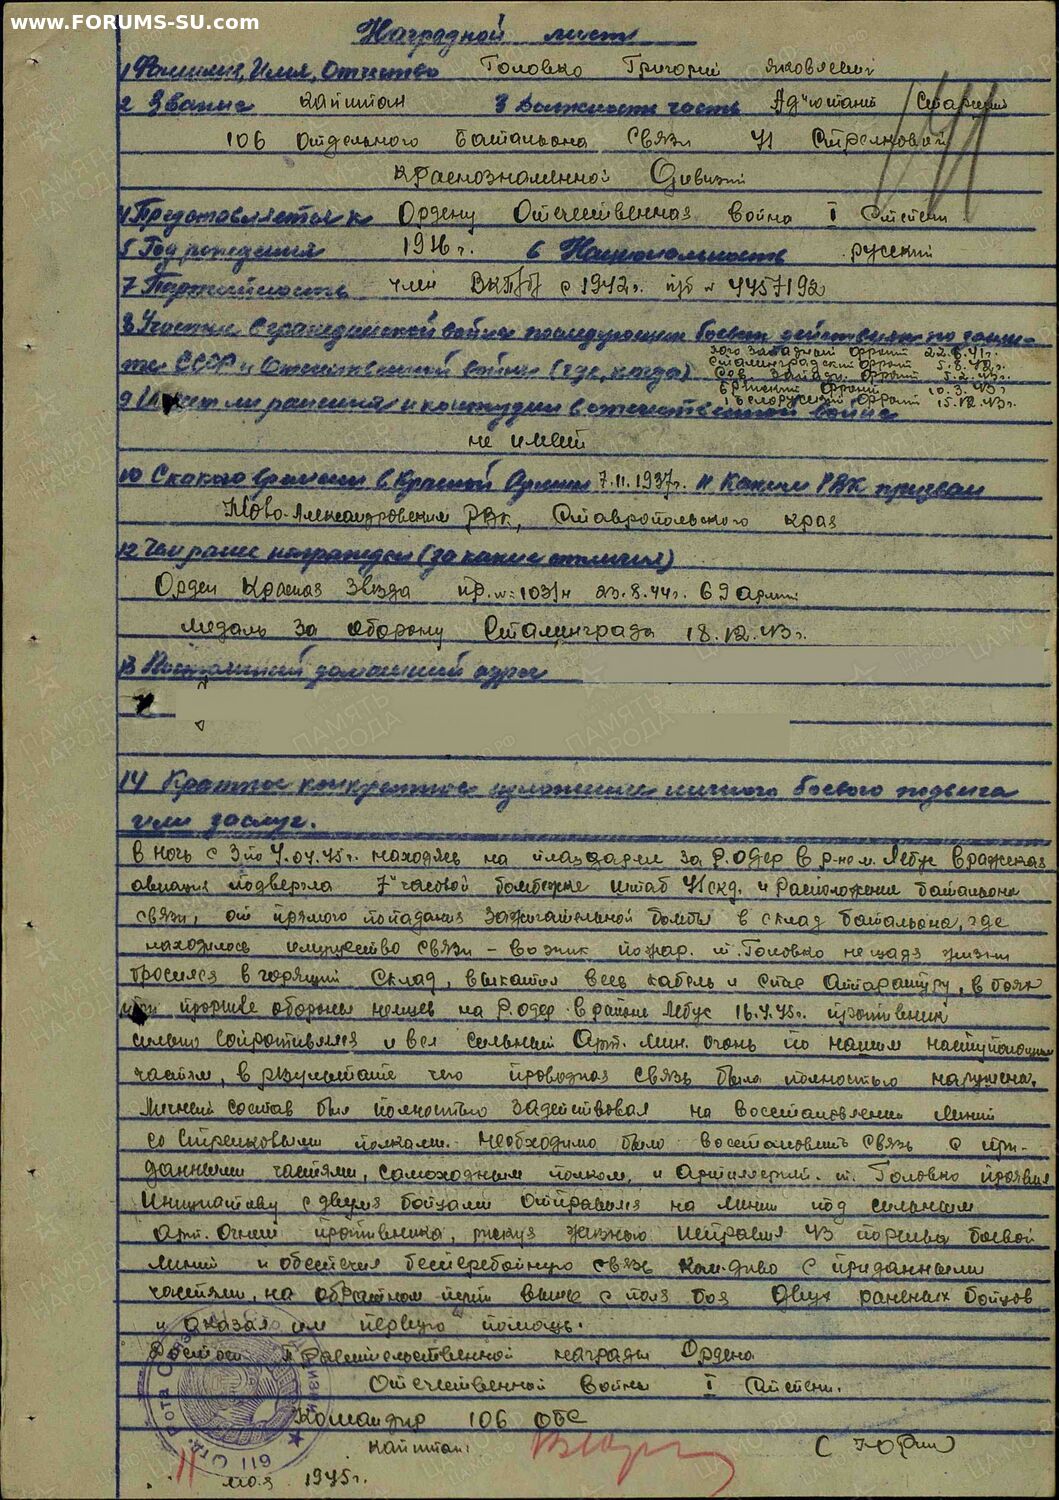 www.FORUMS-SU.com
Наградной лист
1 Фамилия, Имя, Отчество Головко Григорий Яковлевич
2 Звание капитан 3 Должность часть Адъютант Старший
106 отдельного Батальона Связи 41 Стрелковой
Краснознаменной Дивизии
4 Представляется к Ордену Отечественная Война I Степени
5 Год рождения 1916 г. 6 Национальность русский
7 Партийность член ВКП/б/ с 1942 г. п/б № 4457192
8 Участие в гражданской войне последующим боевым действиям по защи-
те СССР и Отечественной войне (где, когда)
Юго Западный фронт 22.6.41 г.
Сталинградский фронт 5.8.42 г.
Сев. Западн. фронт 5.2.43 г.
Брянский фронт 10.3.43 г.
1 Белорусский фронт 15.12.43 г.
9 Имеет ли ранения и контузии в отечественной войне
не имеет
10 С какого времени в Красной Армии 7.11.1937 г. 11 Каким РВК призван
Ново-Александровским РВК, Ставропольского края
12 Чем ранее награжден (за какие отличия)
Орден Красная Звезда пр. №: 103/н 23.8.44 г. 69 армии
медаль За оборону Сталинграда 18.12.43 г.
13 Постоянный домашний адрес
14 Краткое конкретное изложение личного боевого подвига
или заслуг.
в ночь с 3 по 4.04.45 г. находясь на плацдарме за Р. Одер в р-не м. Лебус вражеская
авиация подвергла 7и часовой бомбежке штаб 41 скд. и расположение батальона
связи, от прямого попадания зажигательной бомбы в склад батальона, где
находилось имущество связи – возник пожар. т. Головко не щадя жизни
бросился в горящий склад, выкатил весь кабель и спас аппаратуру, в боях
при прорыве обороны немцев на Р. Одер в районе Лебус 16.4.45 г. противник
сильно сопротивлялся и вел сильный Арт. мин. огонь по нашим наступающим
частям, в результате чего проводная связь была полностью нарушена.
Личный состав был полностью задействован на восстановлении линий
со стрелковыми полками. Необходимо было восстановить связь с при-
данными частями, самоходным полком, и артиллерией. т. Головко проявил
инициативу с двумя бойцами отправился на линию под сильным
арт. огнем противника, рискуя жизнью исправил 43 порыва боевой
линии и обеспечил бесперебойную связь ком-диво с приданными
частями, на обратном пути вынес с поля боя двух раненых бойцов
и оказал им первую помощь.
Достоин Правительственной награды Ордена
Отечественной Война I Степени.
Командир 106 ОБС
капитан:
11 мая 1945 г.